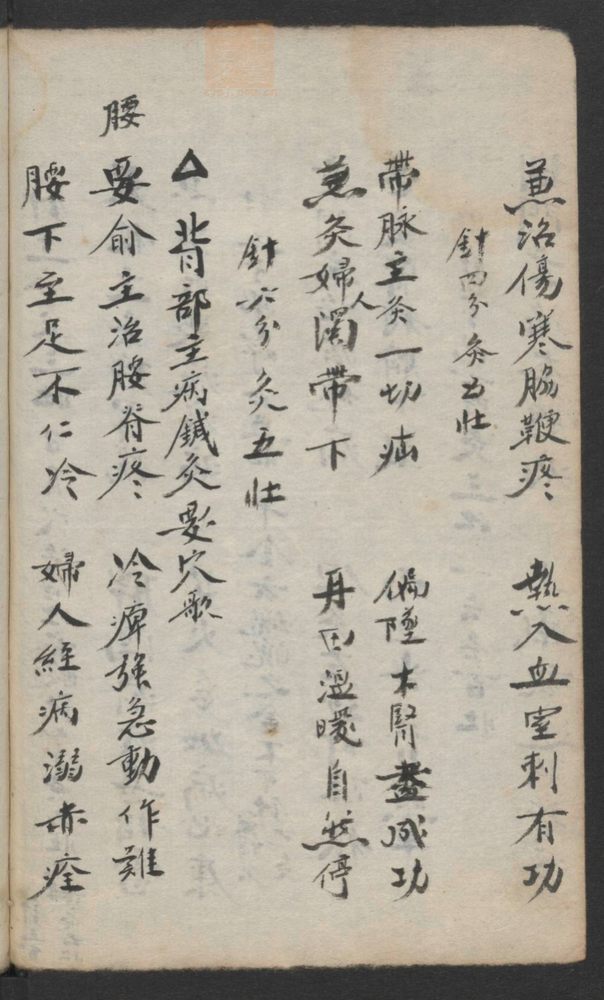 兼治傷寒脇鞕疼　熱入血室刺有功
針四分　灸五壯
帶脉主灸一切疝　偏墜木腎盡成功
兼灸婦人濁帶下　丹田溫暖自然停
針六分　灸五壯
△背部主病鍼灸要穴歌
腰
要俞主治腰脊疼　冷痺強急動作難
腰下至足不仁冷　婦人經病溺赤痊